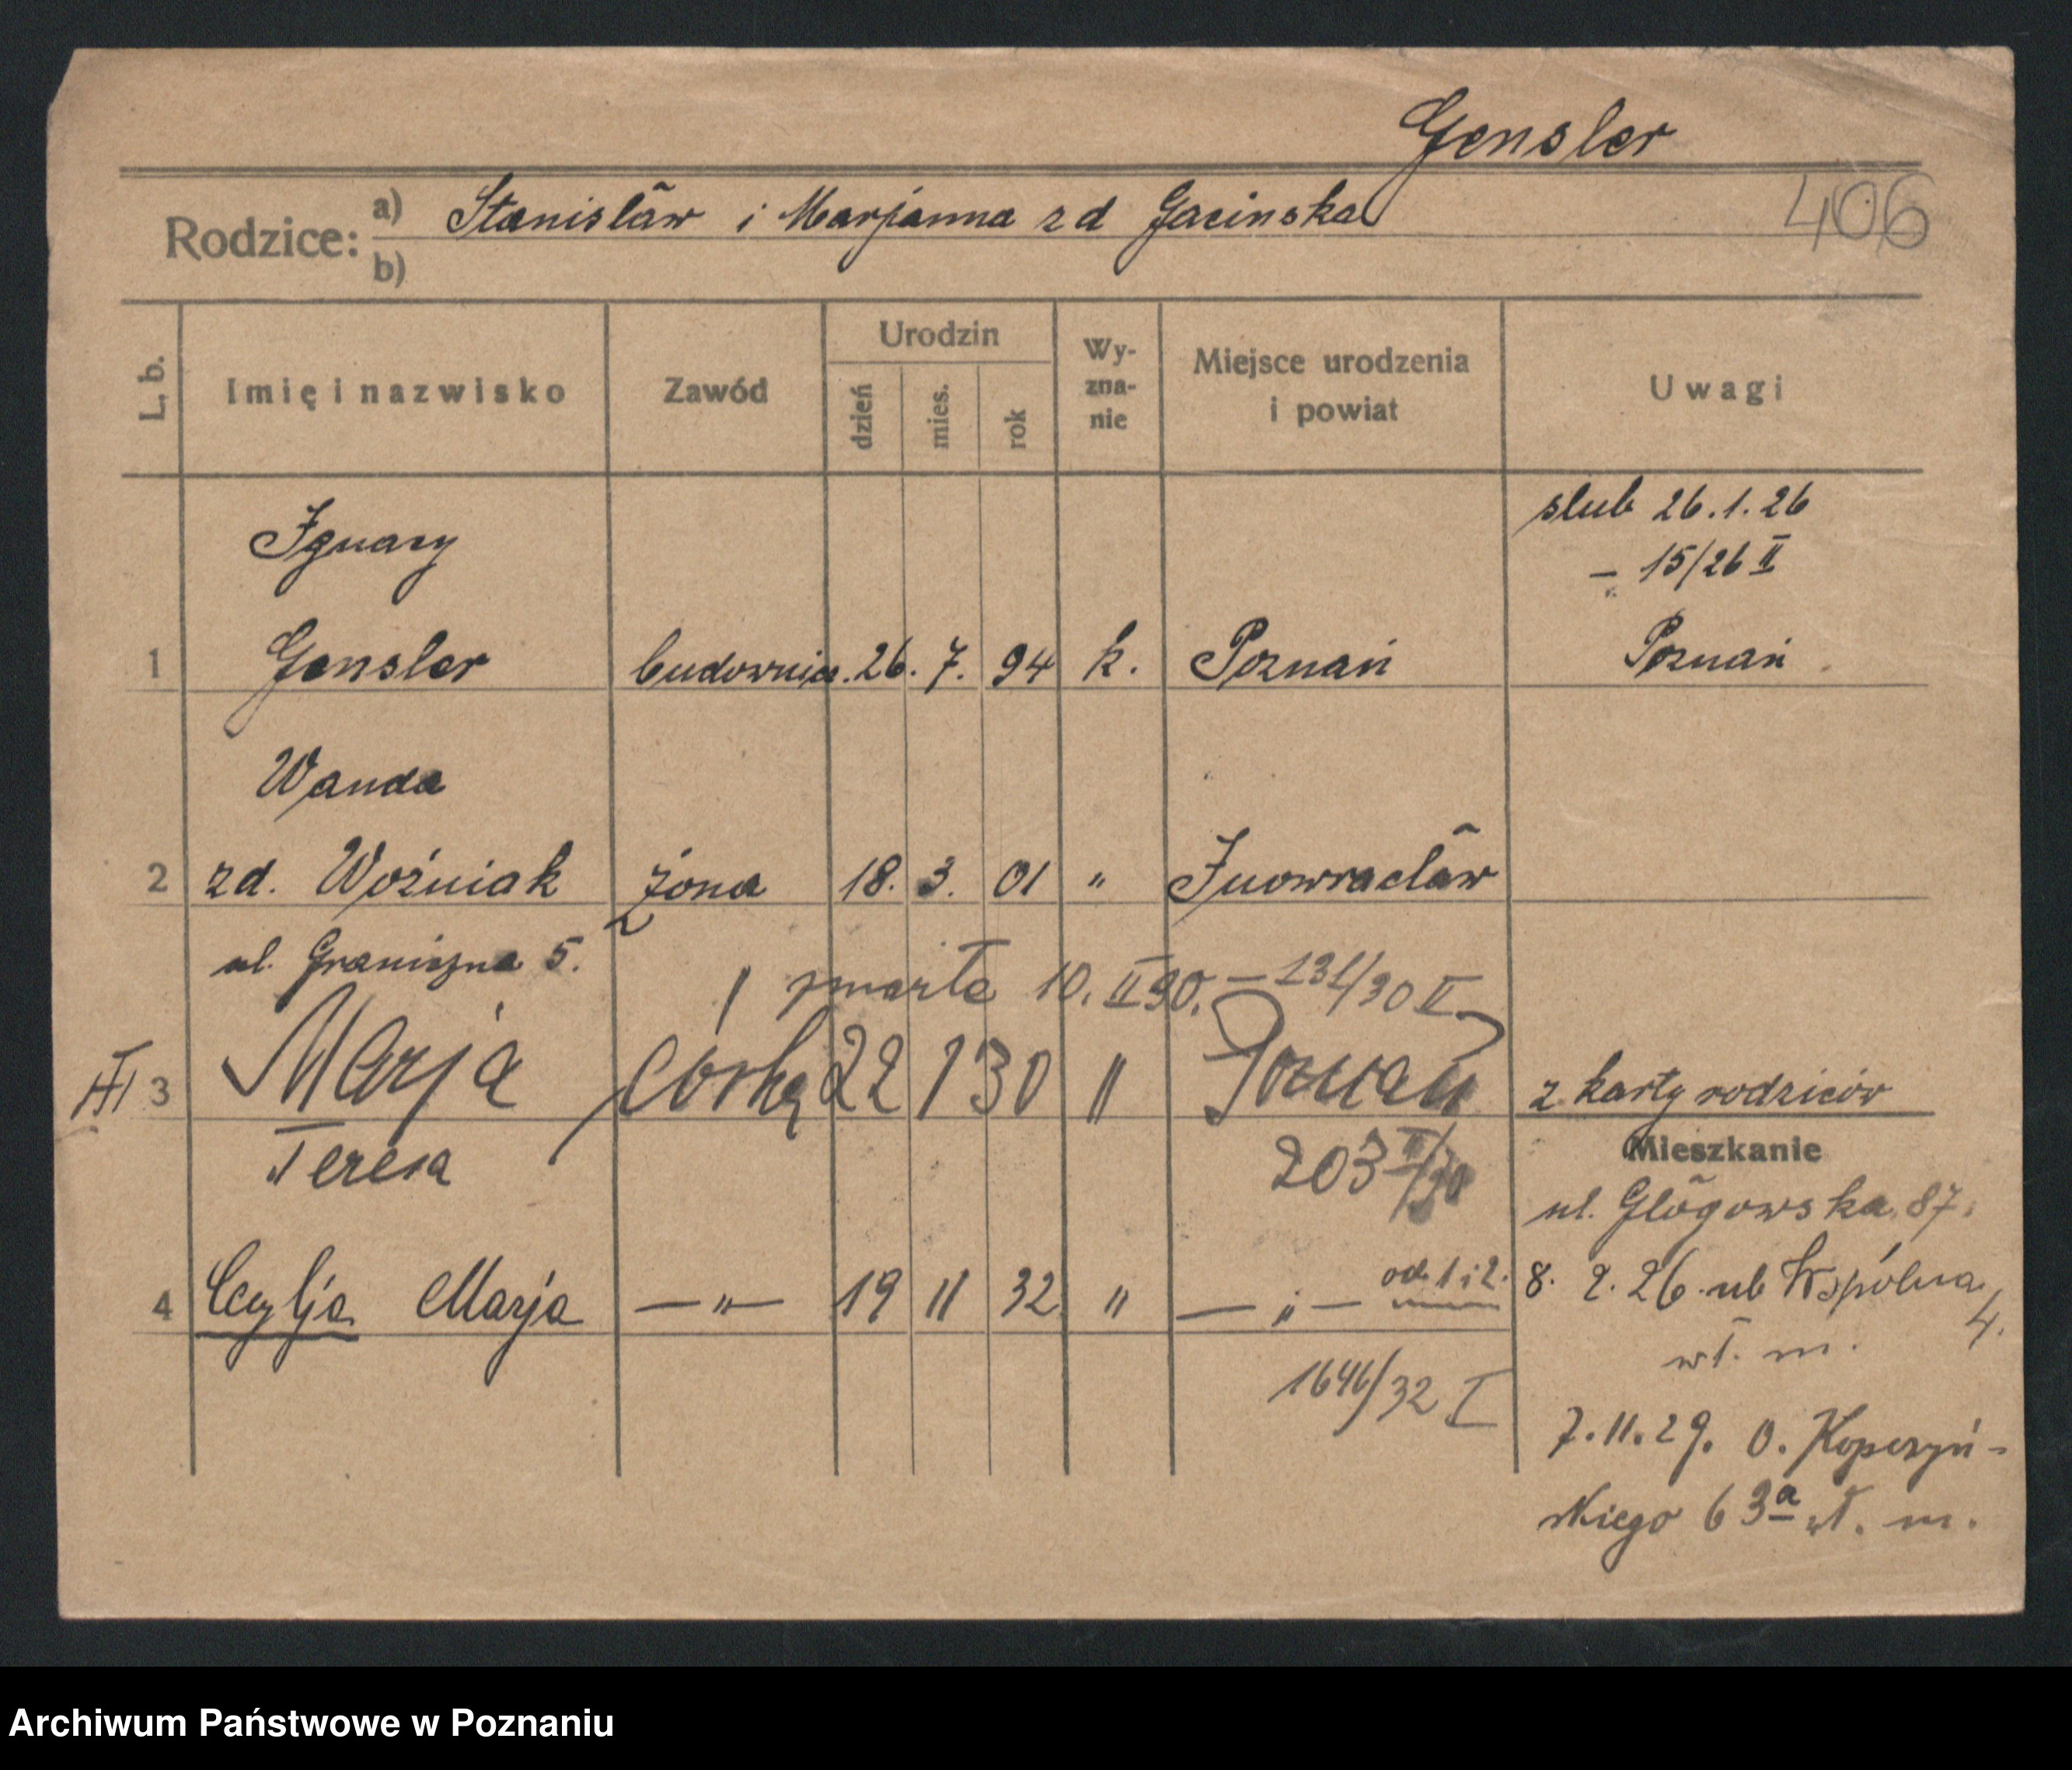 Gensler
406
Rodzice: a) Stanisław i Marjanna zd Gacinska
b)
L. b.
Imię i nazwisko
Zawód
Urodzin
dzień
mies.
rok
Wy-
zna-
nie
Miejsce urodzenia
i powiat
Uwagi
Ignacy
slub 26.1.26
— 15/26 II
1 Gensler budownicz. 26. 7. 94 k. Poznań Poznań
Wanda
2 zd. Woźniak żona 18. 3. 01 " Inowracław
ul. Graniczna 5.
zmarła 10. II 30. — 131/30 II
III 3 Marja córka 22 1 30 " Poznań z karty rodziców
Teresa
203 II/30
Mieszkanie
ul. Głogowska 87.
od 1 i 2. 8. 2. 26. ul. Wspólna
4 Cecylja Marja — " — 19 11 32 " — " —
4.
wł. m.
1646/32 I
7.11.29. O. Kopczyń-
skiego 63a wł. m.
Archiwum Państwowe w Poznaniu